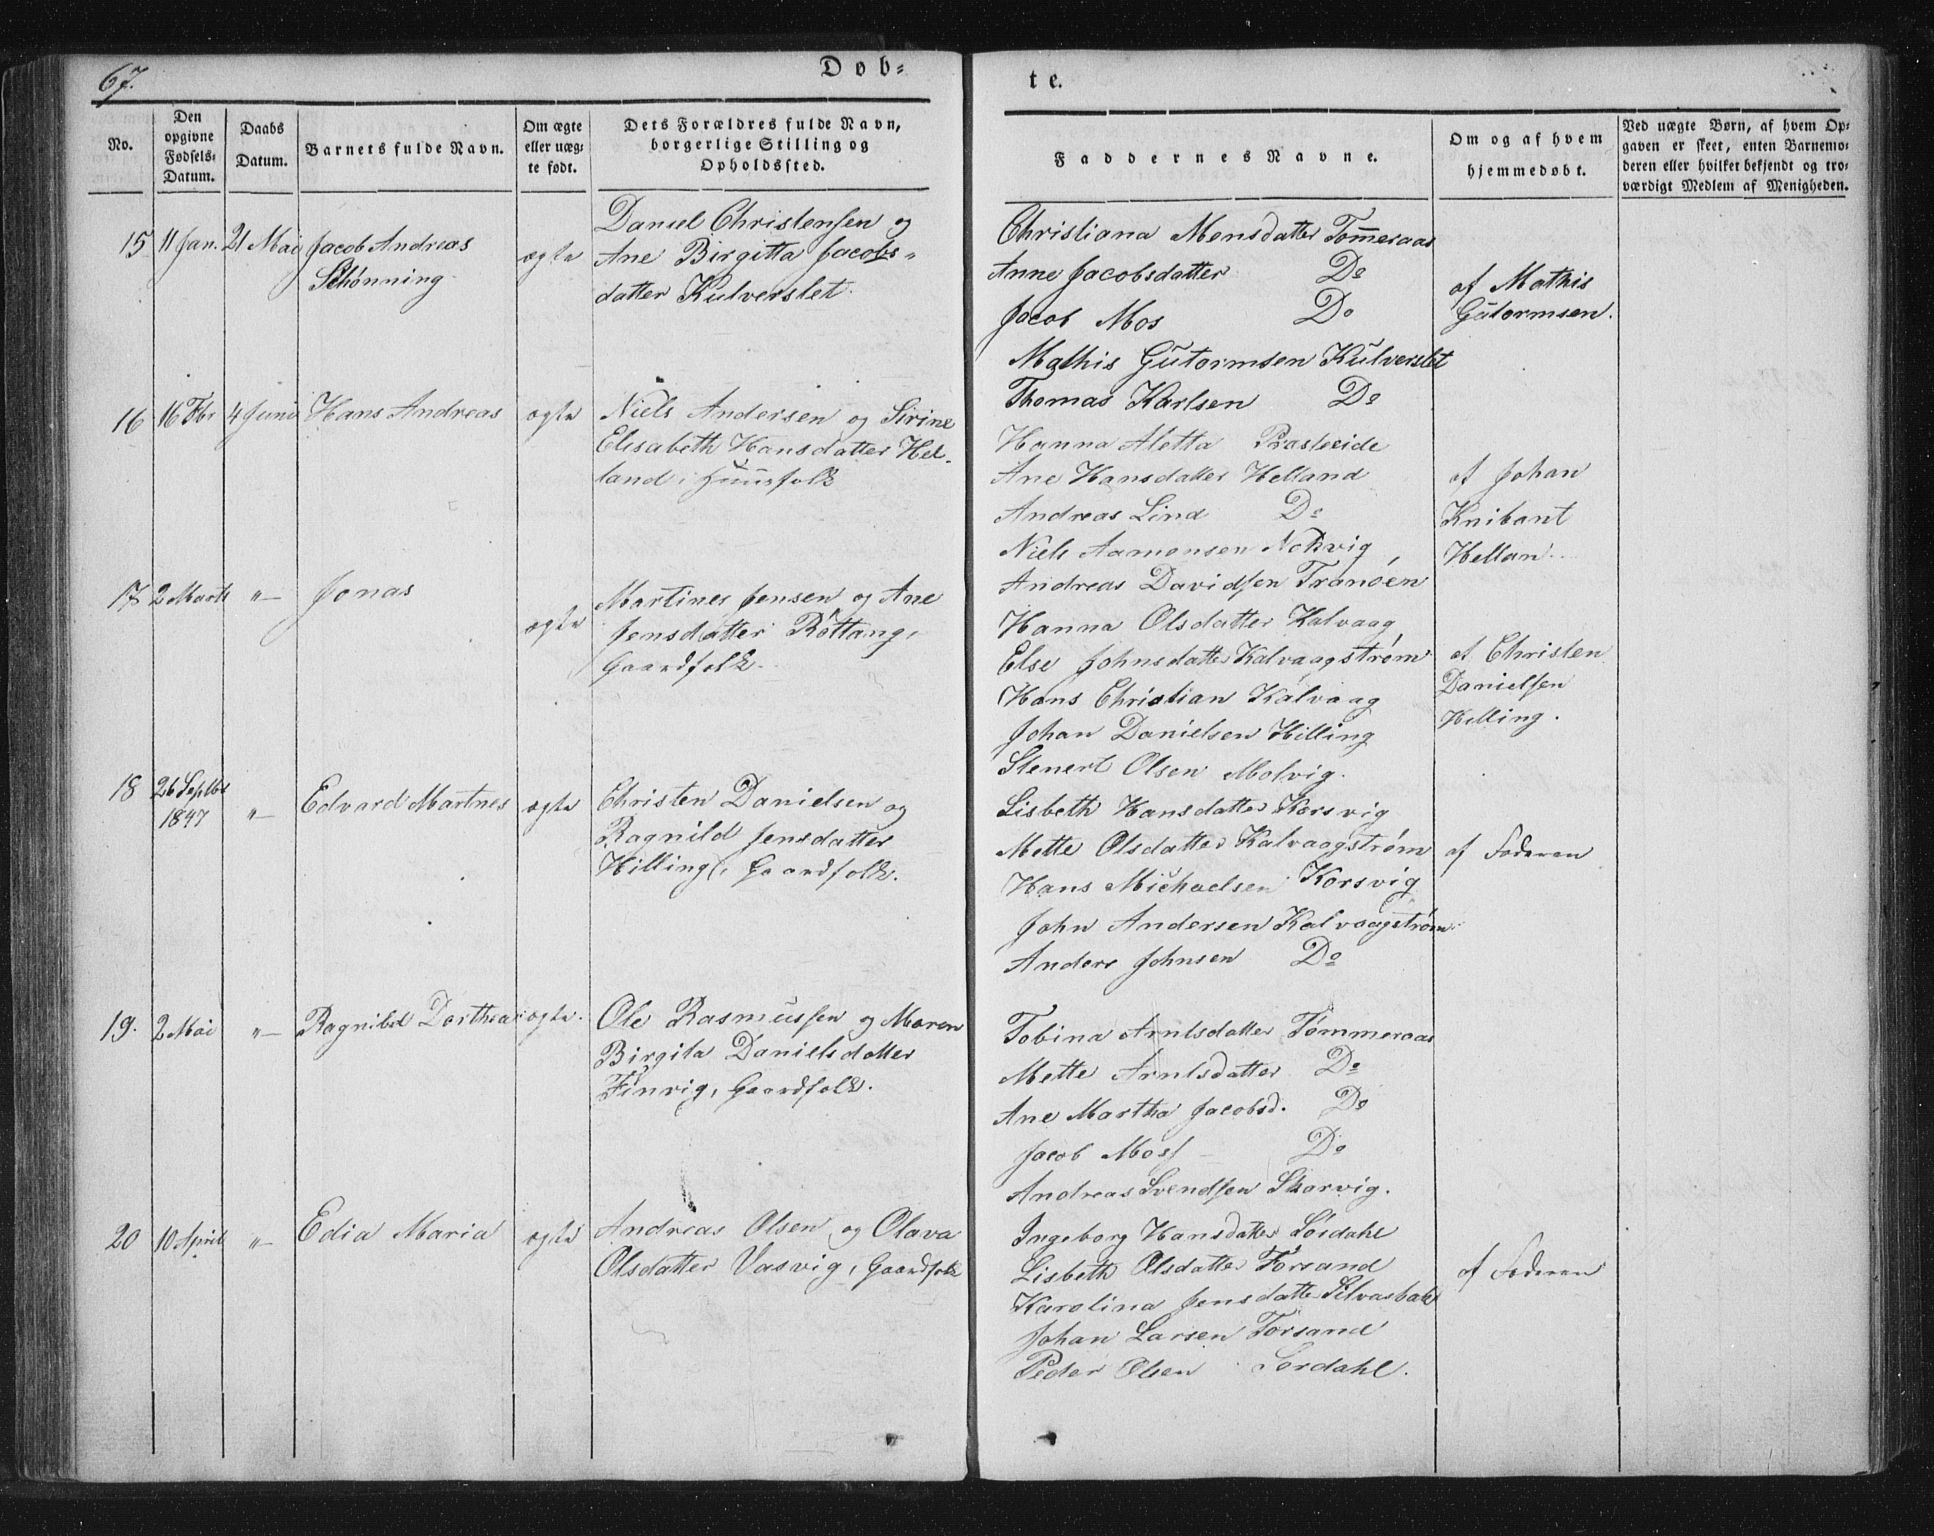 67.
Døb-
te.
No.
Den opgivne Fødsels-Datum.
Daabs Datum.
Barnets fulde Navn.
Om ægte eller uæg-te født.
Dets Forældres fulde Navn, borgerlige Stilling og Opholdssted.
Faddernes Navne.
Om og af hvem hjemmedøbt.
Ved uægte Børn, af hvem Op-gaven er skeet, enten Barnemo-deren eller hvilket bekjendt og tro-værdigt Medlem af Menigheden.
15 11 Jan. 21 Mai Jacob Andreas
Schønning
ægte
Daniel Christensen og
Ane Birgitta Jacobs-
datter Kulverslet.
Christiana Monsdatter Tom̄eraas
Anne Jacobsdatter Do
Jacob Mos Do
Mathis Gutormsen Kulverslet
Thomas Karlsen Do
af Mathis
Gutormsen.
16 16 Fbr 4 Juni Hans Andreas
ægte
Niels Andersen og Sirine
Elisabeth Hansdatter Hel-
land, Huusfolk
Hanna Aletta Presteeide
Ane Hansdatter Helland
Andreas Lind Do
Niels Aamonsen Nordvig
Andreas Davidsen Tranöen
af Johan
Knibant
Hellan.
17 2 Marts " Jonas
ægte
Martines Jensen og Ane
Jensdatter Röttang,
Gaardfolk.
Hanna Olsdatter Kalvaag
Else Johnsdatter Kalvaagstrøm
Hans Christian Kalvaag
Johan Danielsen Hilling
Stenert Olsen Molvig.
af Christen
Danielsen
Hilling.
18 26 Septbr
1847 " Edvard Martnes
ægte
Christen Danielsen og
Ragnild Jensdatter
Hilling, Gaardfolk.
Lisbeth Hansdatter Korsvig
Mette Olsdatter Kalvaagstrøm
Hans Michaelsen Korsvig
John Andersen Kalvaagstrøm
Anders Johnsen Do
af Faderen
19. 2 Mai " Ragnild Dorthea
ægte.
Ole Rasmussen og Maren
Birgita Danielsdatter
Finvig, Gaardfolk.
Tobina Arntsdatter Tömmeraas
Mette Arntsdatter Do
Ane Martha Jacobsd. Do
Jacob Moss Do
Andreas Svendsen Skarvig.
20 10 April " Edia Maria
ægte
Andreas Olsen og Olava
Olsdatter Vasvig, Gaardfolk
Ingeborg Hansdatter Sørdahl
Lisbeth Olsdatter Forsand
Karolina Jensdatter Selvasbak
Johan Larsen Forsand
Peder Olsen Sørdahl.
af Faderen